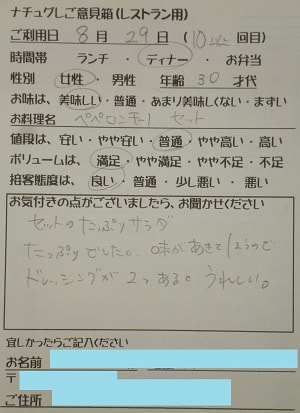 ナチュグしご意見箱(レストラン用)
ご利用日 8 月 29 日 (10以上 回目)
時間帯 ランチ ・ ディナー ・ お弁当
性別 女性 ・ 男性 年齢 30 才代
お味は、美味しい・普通・あまり美味しくない・まずい
お料理名 ペペロンチーノ セット
値段は、安い・やや安い・普通・やや高い・高い
ボリュームは、満足・やや満足・やや不足・不足
接客態度は、良い・普通・少し悪い・悪い
お気付きの点がございましたら、お聞かせください
セットのたっぷりサラダ
たっぷりでした。味があきてしまうので
ドレッシングが2つあると うれしい。
宜しかったらご記入ください
お名前
〒
ご住所